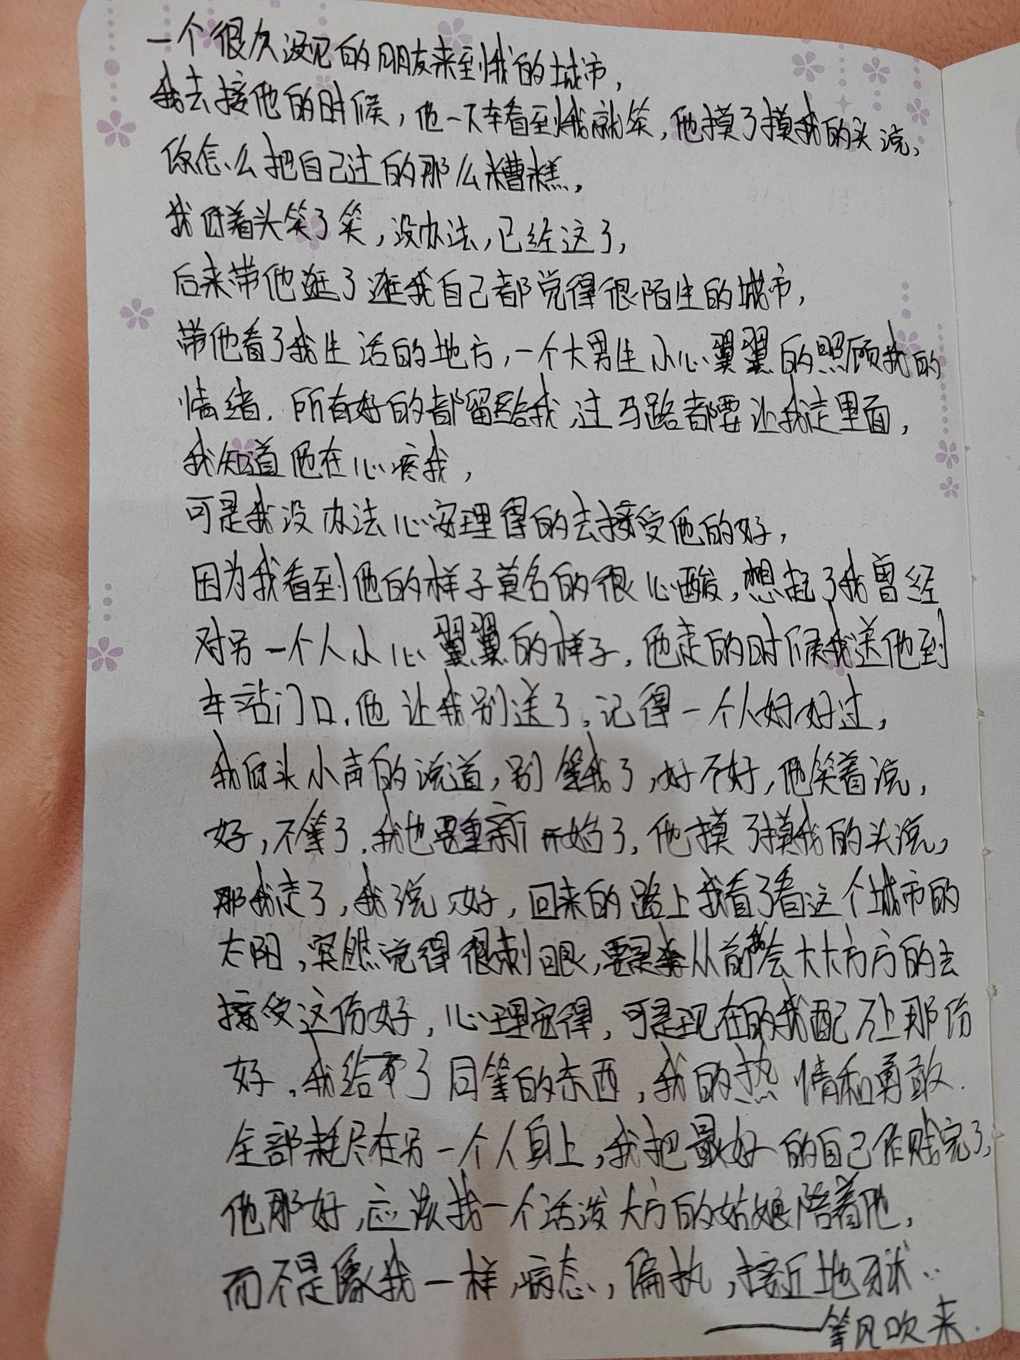 一个很久没见的朋友来到我的城市，
我去接他的时候，他一下车看到我就笑，他摸了摸我的头说，
你怎么把自己过的那么糟糕，
我低着头笑了笑，没办法，已经这了，
后来带他逛了逛我自己都觉得很陌生的城市，
带他看了我生活的地方，一个大男生小心翼翼的照顾我的
情绪．所有好的都留给我，过马路都要让我走里面，
我知道他在心疼我，
可是我没办法心安理得的去接受他的好，
因为我看到他的样子莫名的很心酸，想起了我曾经
对另一个人小心翼翼的样子，他走的时候我送他到
车站门口，他让我别送了，记得一个人好好过，
我低头小声的说道，别等我了，好不好，他笑着说，
好，不等了，我也要重新开始了，他摸了摸我的头说，
那我走了，我说，好，回来的路上我看了看这个城市的
太阳，突然觉得很刺眼，要是从前我会大大方方的去
接受这份好，心理安得，可是现在的我配不上那份
好，我给不了同等的东西，我的热情和勇敢．
全部耗尽在另一个人身上，我把最好的自己作贱完了，
他那好，应该找一个活泼大方的姑娘陪着他，
而不是像我一样，病态，偏执，接近地狱．．
——等风吹来．